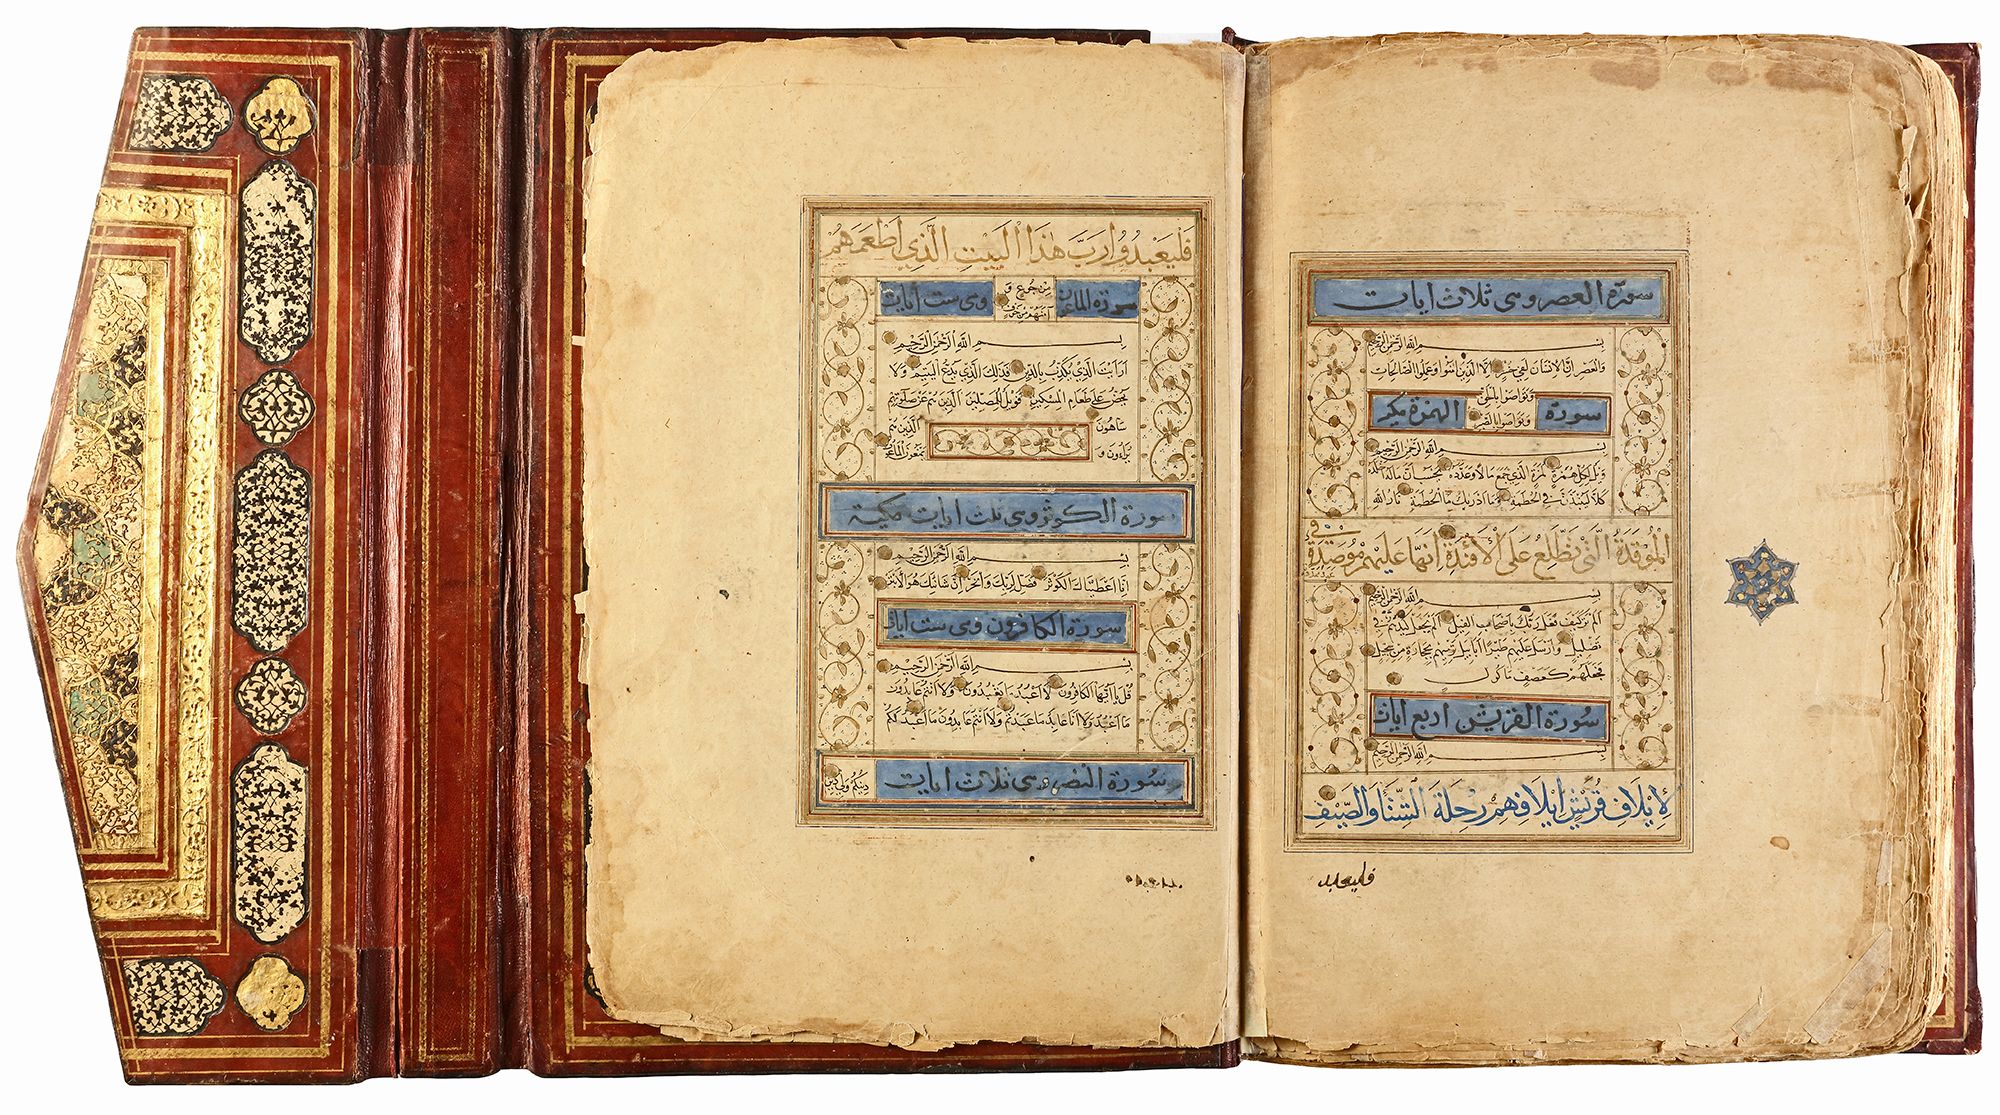 سورة العصر وهي ثلاث ايات
بسم الله الرحمن الرحيم
والعصر ان الانسان لفي خسر الا الذين امنوا وعملوا الصالحات
وتواصوا بالحق
وتواصوا بالصبر
سورة الهمزة مكية
بسم الله الرحمن الرحيم
ويل لكل همزة لمزة الذي جمع مالا وعدده يحسب ان ماله اخلده
كلا لينبذن في الحطمة وما ادريك ما الحطمة نار الله
الموقدة التي تطلع على الافئدة انها عليهم موصدة في
بسم الله الرحمن الرحيم
الم تر كيف فعل ربك باصحاب الفيل الم يجعل كيدهم في
تضليل وارسل عليهم طيرا ابابيل ترميهم بحجارة من سجيل
فجعلهم كعصف ماكول
سورة القريش اربع ايات
بسم الله الرحمن الرحيم
لإيلاف قريش ايلافهم رحلة الشتاء والصيف
فليعبد
فليعبدوا رب هذا البيت الذي اطعمهم
من جوع و
آمنهم من خوف
سورة الماعون وهي ست ايات
بسم الله الرحمن الرحيم
ارايت الذي يكذب بالدين فذلك الذي يدع اليتيم ولا
يحض على طعام المسكين فويل للمصلين الذين هم عن صلوتهم
ساهون الذين هم
يراءون و يمنعون الماعون
سورة الكوثر وهي ثلث ايات مكية
بسم الله الرحمن الرحيم
انا اعطيناك الكوثر فصل لربك وانحر ان شانئك هو الابتر
سورة الكافرون وهي ست ايات
بسم الله الرحمن الرحيم
قل يا ايها الكافرون لا اعبد ما تعبدون ولا انتم عابدون
ما اعبد ولا انا عابد ما عبدتم ولا انتم عابدون ما اعبد لكم
دينكم ولي دين
سورة النصر وهي ثلاث ايات